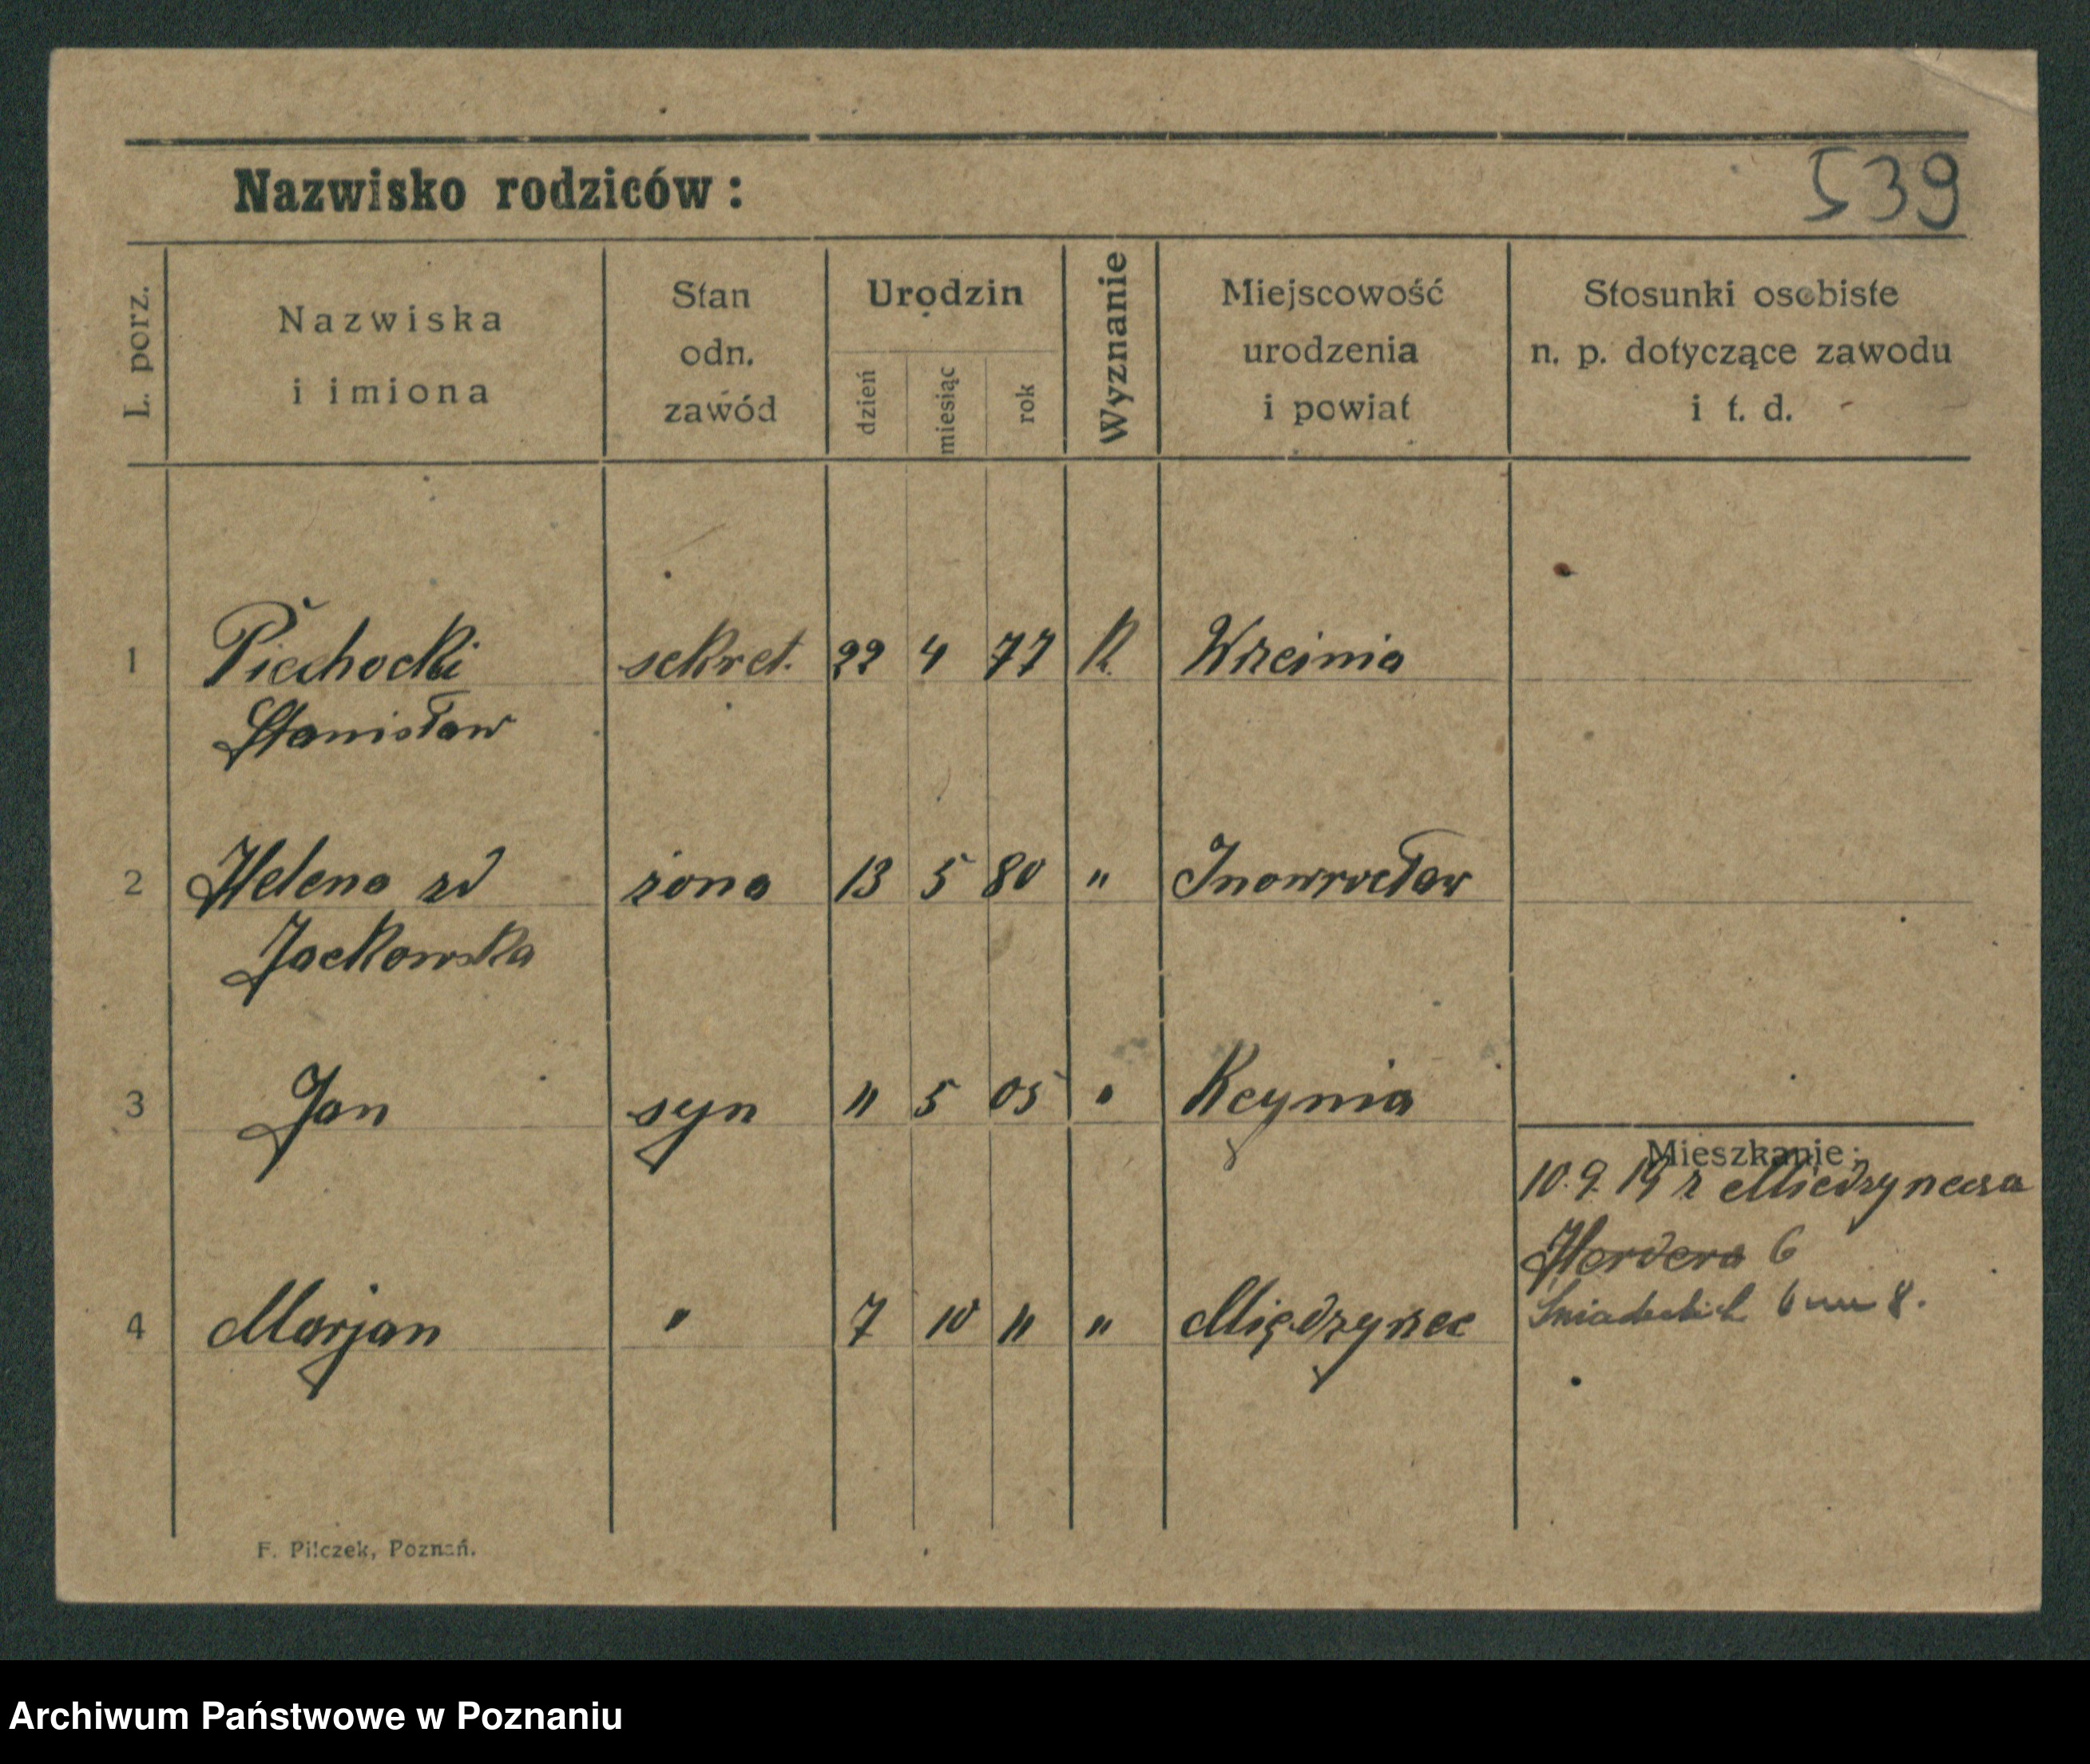 Nazwisko rodziców:
539
L. porz.
Nazwiska
i imiona
Stan
odn.
zawód
Urodzin
dzień
miesiąc
rok
Wyznanie
Miejscowość
urodzenia
i powiat
Stosunki osobiste
n. p. dotyczące zawodu
i t. d.
1 Piechocki sekret. 22 4 77 K. Wrzeinia
Stanisław
2 Helena zd żona 13 5 80 " Inowrocław
Jackowska
3 Jan syn 11 5 05 " Kcynia
Mieszkanie:
10. 9. 19 z Miedzyneca
Herdera 6
Sniadeckich 6 8.
4 Marjan " 7 10 11 " Międzynec
F. Pilczek, Poznań.
Archiwum Państwowe w Poznaniu